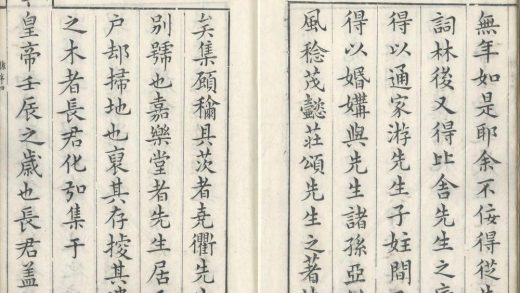 無年如是耶余不佞得從先
詞林後又得比舍先生之
得以通家游先生子姓間
得以婚媾與先生諸孫亞
風稔茂懿莊頌先生之著
矣集顏稱具茨者堯衢先
別號也嘉樂堂者先生居
戶却掃地也裒其存掞其
之木者長君化弘集于
皇帝壬辰之歲也長君蓋